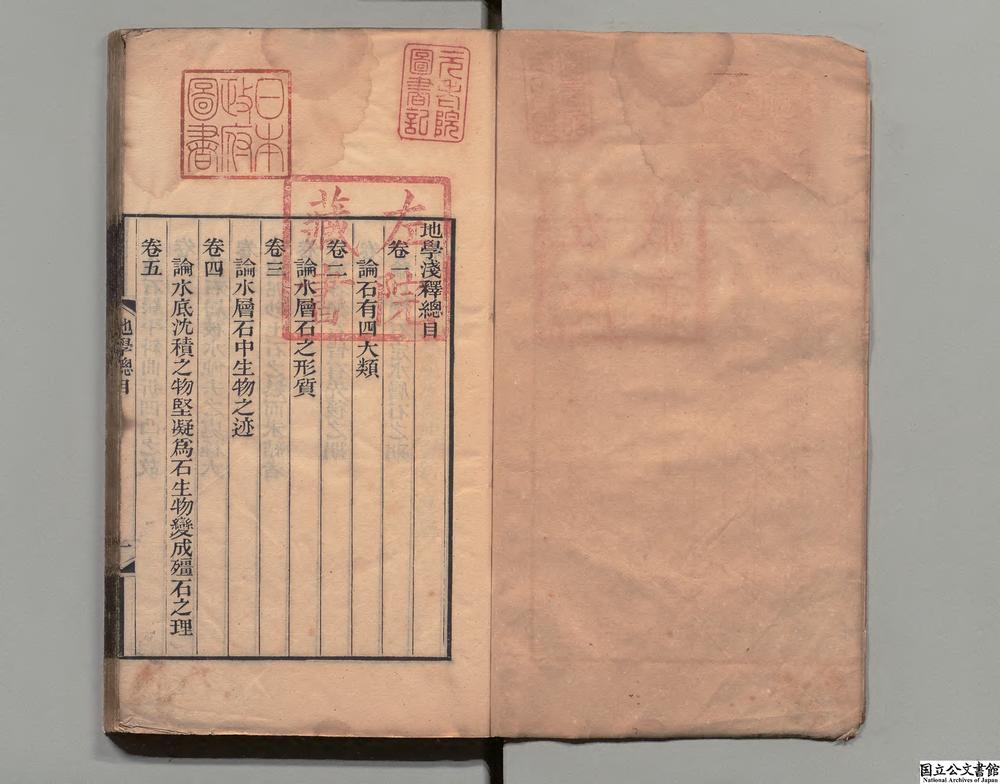 地學淺釋總目
卷一
論石有四大類
卷二
論水層石之形質
卷三
論水層石中生物之迹
卷四
論水底沈積之物堅凝爲石生物變成殭石之理
卷五
地學總目
一
日本政府圖書
元老院圖書記
左院藏書
国立公文書館
National Archives of Japan